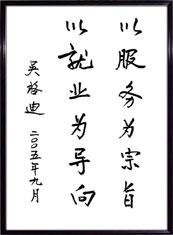 以服务为宗旨
以就业为导向
吴启迪 二〇〇五年九月